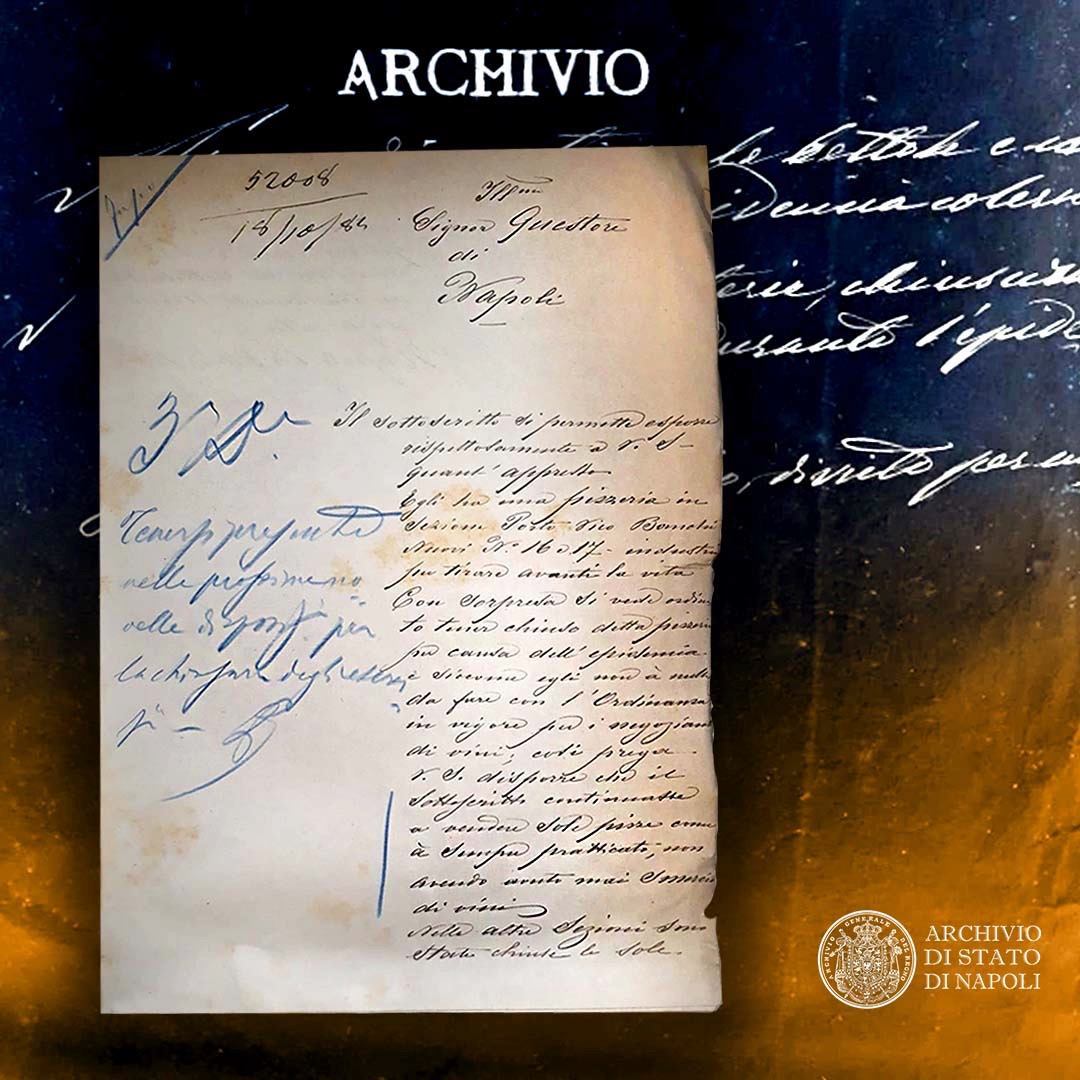 ARCHIVIO
le bettole e
coler
chius
durante l'epide
per
52008
18/10/84
Illmo
Signor Questore
di
Napoli
Il sottoscritto si permette esporre
rispettosamente a V. S.
quant'appresso
Egli ha una pizzeria in
Sezione Porto Vico Banchi
Nuovi N.º 16 e 17 - industria
per tirare avanti la vita
Con sorpresa si vede ordina
to tener chiuso detta pizzeria
per causa dell'epidemia
e siccome egli non à nulla
da fare con l'Ordinanza
in vigore per i negozianti
di vini; così prega
V. S. disporre che il
sottoscritto continuasse
a vendere sole pizze come
à sempre pratticato, non
avendo avuto mai smercio
di vini
Nelle altre Sezioni sono
state chiuse le sole
Tenersi presente
nelle prossime
nelle per
la chiusura degli
ARCHIVIO GENERALE DEL REGNO
ARCHIVIO
DI STATO
DI NAPOLI